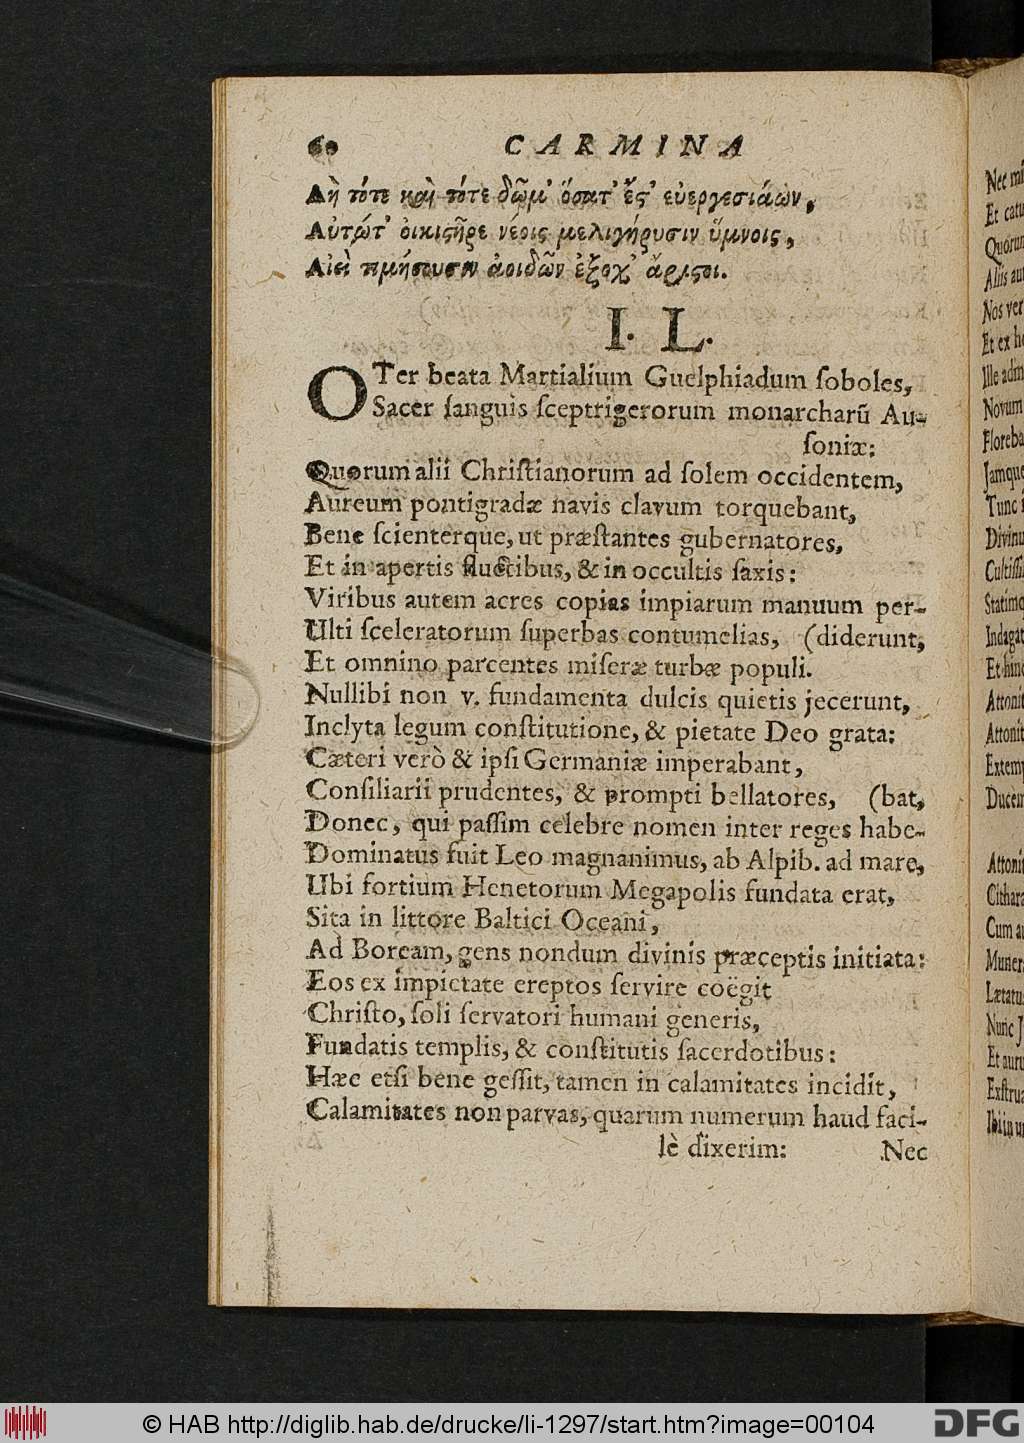 60 CARMINA
Δὴ τότε καὶ τότε δῶμ' ὅσατ' ἔς' εὐεργεσιάων,
Αὐτῴτ' οἰκιςῆρε νέοις μελιγήρυσιν ὕμνοις,
Αἰεὶ τιμήσουσιν ἀοιδῶν ἐξοχ' ἄριςοι.
I. L.
OTer beata Martialium Guelphiadum ſoboles,
Sacer ſanguis ſceptrigerorum monarcharũ Au-
ſoniæ:
Quorum alii Chriſtianorum ad ſolem occidentem,
Aureum pontigradæ navis clavum torquebant,
Bene ſcienterque, ut præſtantes gubernatores,
Et in apertis fluctibus, & in occultis ſaxis:
Viribus autem acres copias impiarum manuum per-
Ulti ſceleratorum ſuperbas contumelias, (diderunt,
Et omnino parcentes miſeræ turbæ populi.
Nullibi non v. fundamenta dulcis quietis jecerunt,
Inclyta legum conſtitutione, & pietate Deo grata:
Cæteri verò & ipſi Germaniæ imperabant,
Conſiliarii prudentes, & prompti bellatores, (bat,
Donec, qui paſſim celebre nomen inter reges habe-
Dominatus fuit Leo magnanimus, ab Alpib. ad mare,
Ubi fortium Henetorum Megapolis fundata erat,
Sita in littore Baltici Oceani,
Ad Boream, gens nondum divinis præceptis initiata:
Eos ex impietate ereptos ſervire coëgit
Chriſto, ſoli ſervatori humani generis,
Fundatis templis, & conſtitutis ſacerdotibus:
Hæc etſi bene geſſit, tamen in calamitates incidit,
Calamitates non parvas, quarum numerum haud faci-
lè dixerim: Nec
Et
Aliis
Nos ver
Et ex
Ille
Novum
Floreba
Jamque
Tunc
Divinu
Cultiſſi
Statimq
Indagat
Et hinc
Attonit
Attonit
Extemp
Ducem
Attonit
Cithara
Cum
Munera
Lætatu
Nunc
Et auru
Exſtrua
© HAB http://diglib.hab.de/drucke/li-1297/start.htm?image=00104
DFG